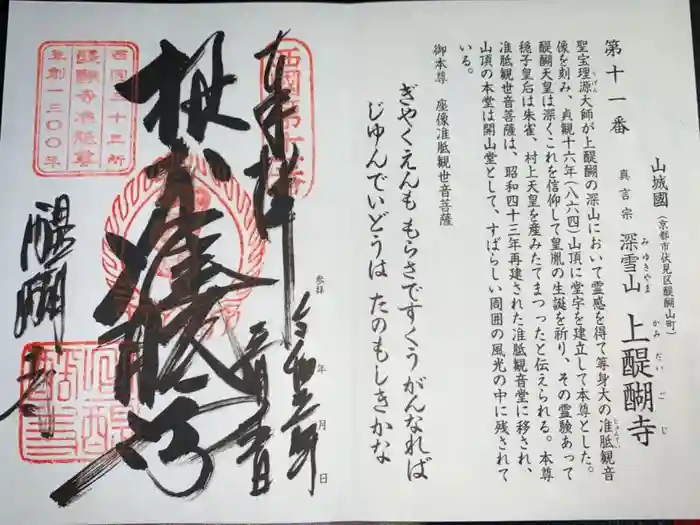 第十一番
山城國（京都市伏見区醍醐山町）
真言宗 深雪山 上醍醐寺
みゆきやま かみだいごじ
聖宝理源大師が上醍醐の深山において霊感を得て等身大の准胝観音
像を刻み、貞観十六年（八六四）山頂に堂宇を建立して本尊とした。
醍醐天皇は深くこれを信仰して皇胤の生誕を祈り、その霊験あって
穏子皇后は朱雀、村上天皇を産みたてまつったと伝えられる。本尊
准胝観世音菩薩は、昭和四十三年再建された准胝観音堂に移され、
山頂の本堂は開山堂として、すばらしい周囲の風光の中に残されて
いる。
御本尊 座像准胝観世音菩薩
ぎやくえんも もらさですくうがんなれば
じゅんでいどうは たのもしきかな
奉拝
西國第十一番
参拝 年 月 日
令和三年
根本准胝尊
西国三十三所
醍醐寺准胝堂
草創一三〇〇年
醍醐寺